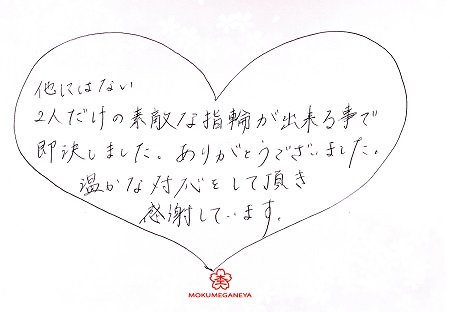 他にはない
2人だけの素敵な指輪が出来る事で
即決しました。ありがとうございました。
温かな対応をして頂き
感謝しています。
MOKUMEGANEYA